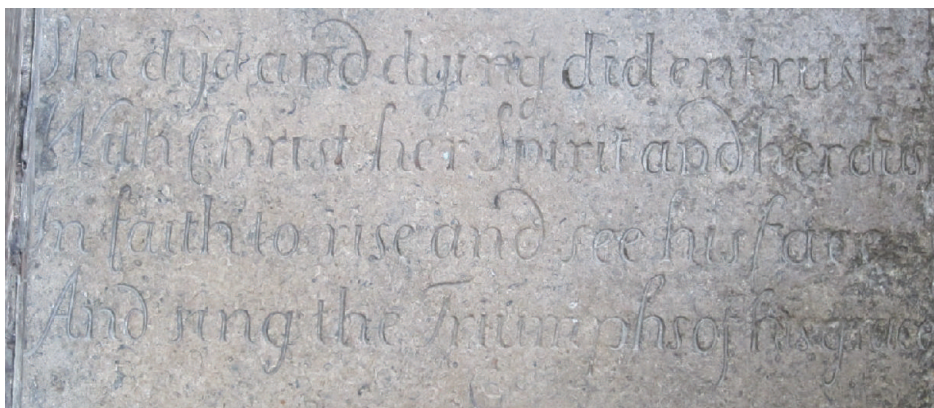 She dyd and dying did entrust
With Christ her Spirit and her dus
In faith to rise and see his face
And sing the Triumphs of his grace